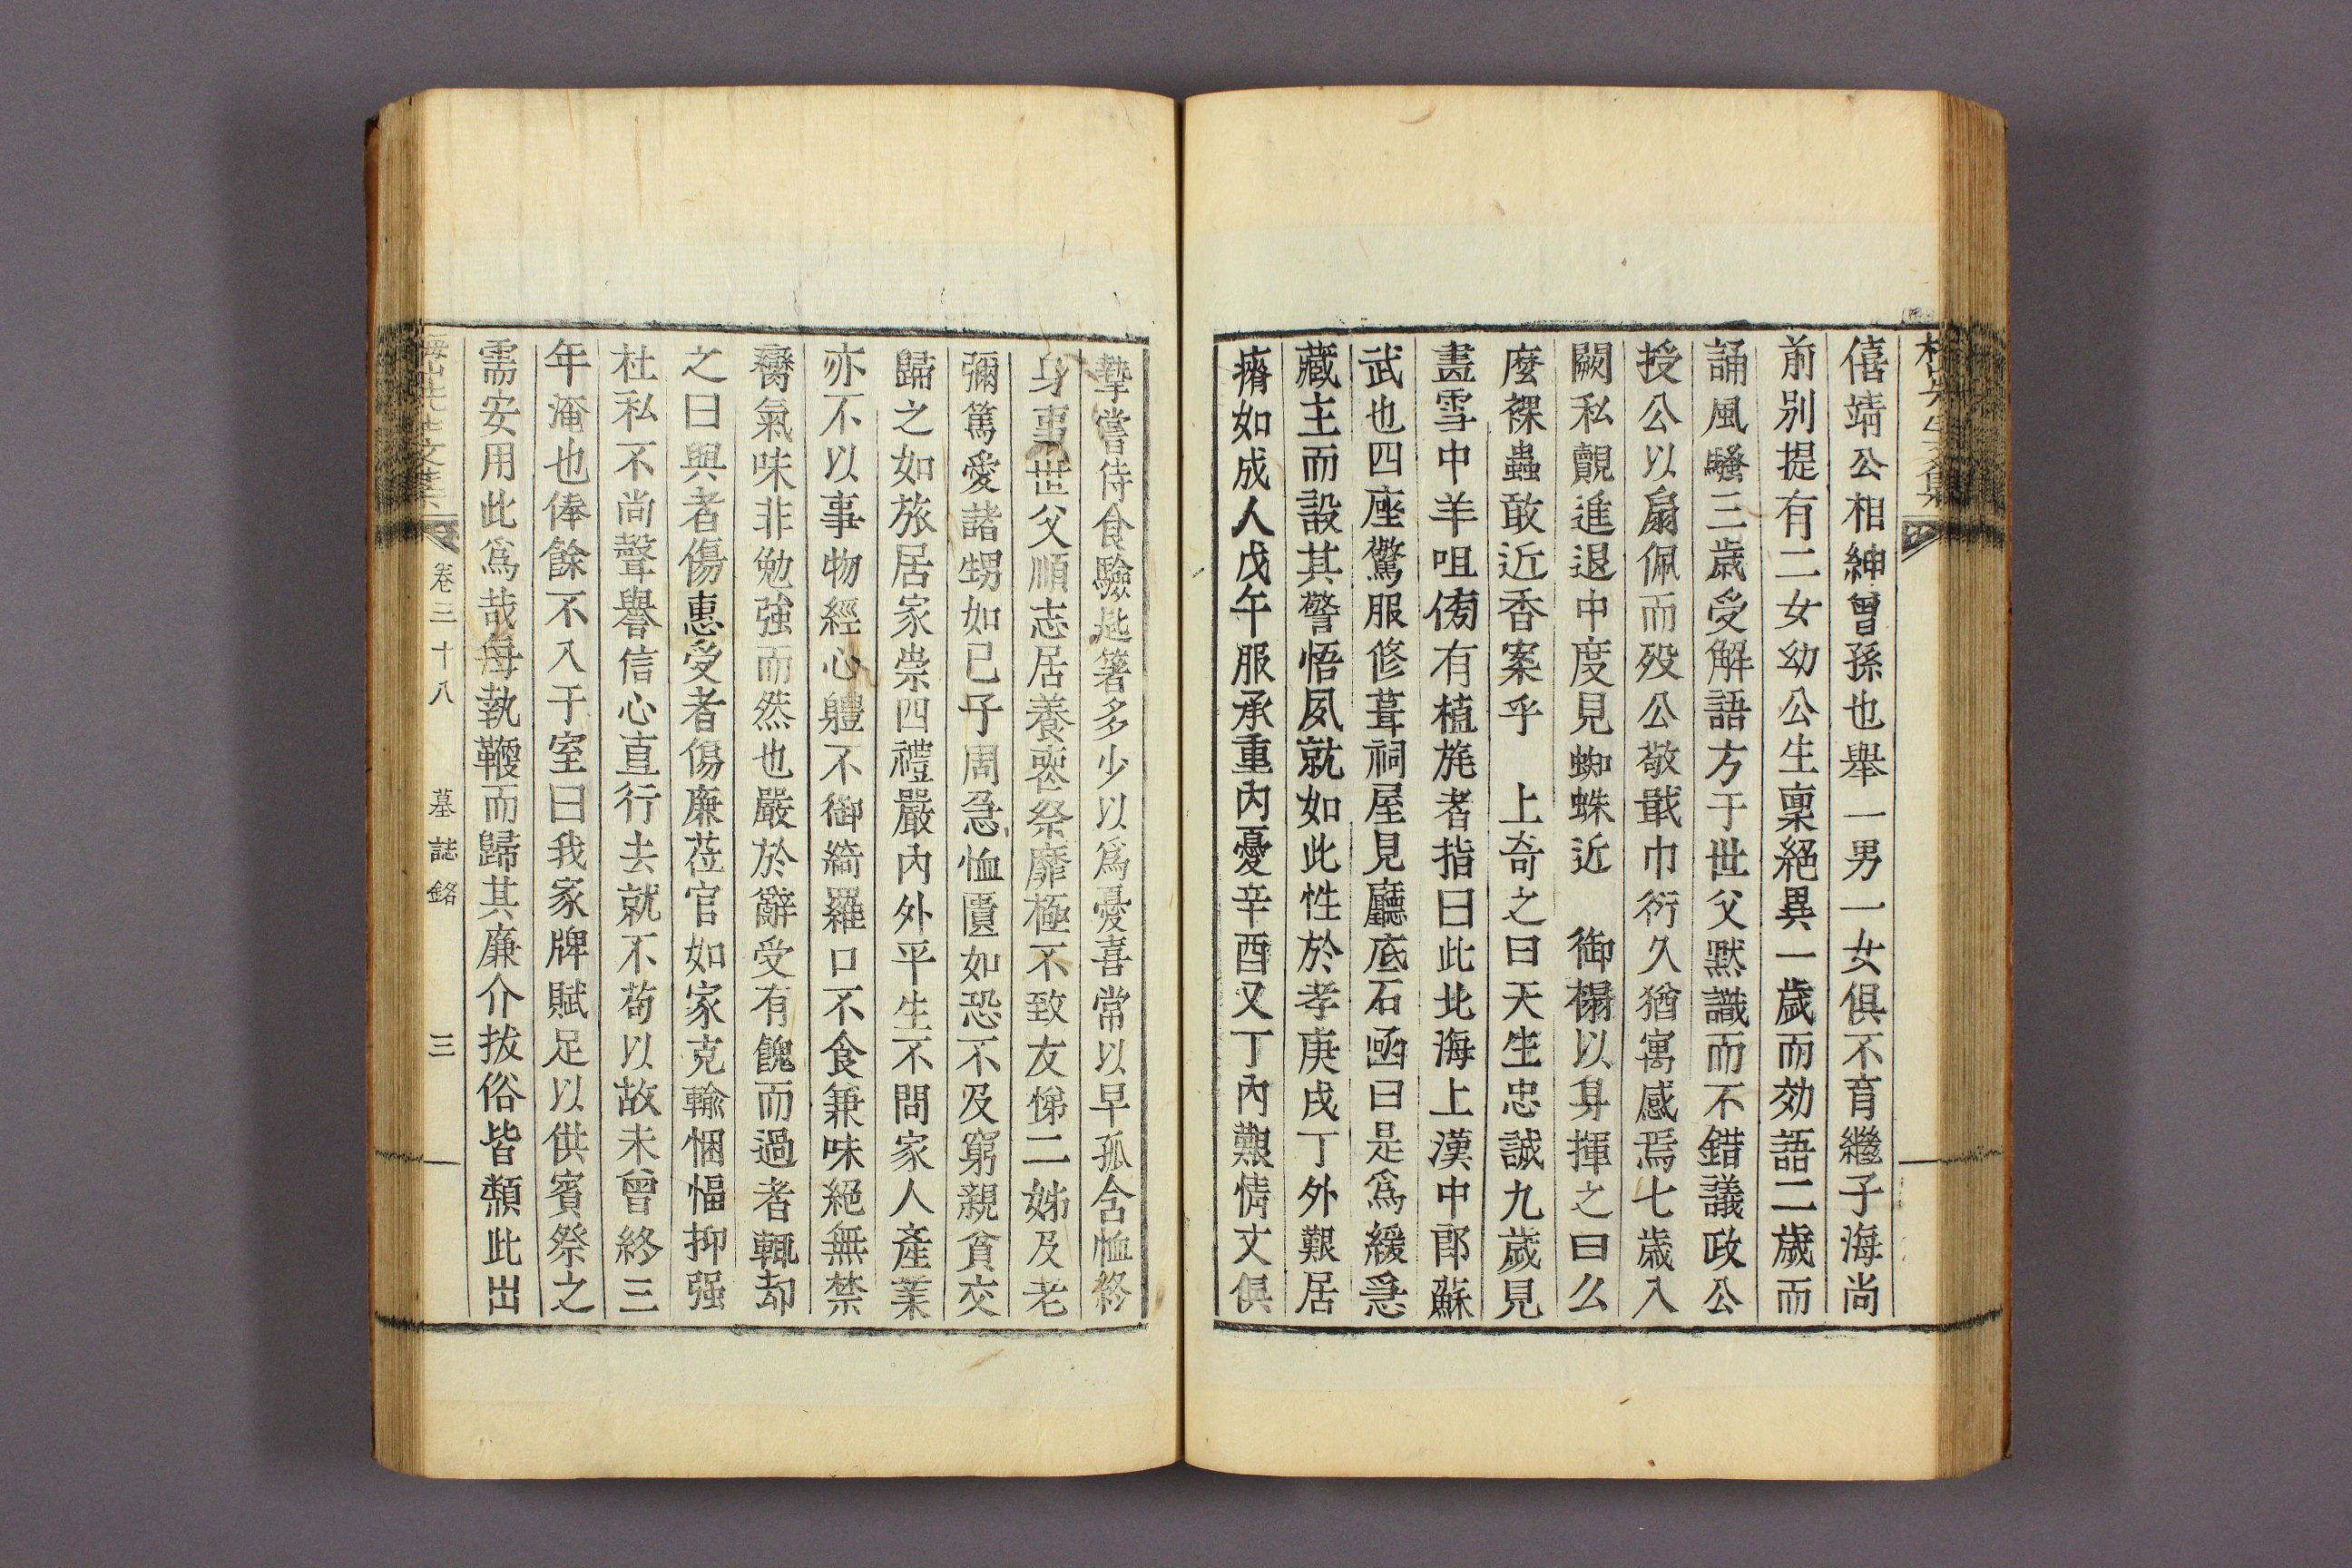 僖靖公相紳曾孫也舉一男一女俱不育繼子海尚
前別提有二女幼公生稟絕異一歲而効語二歲而
誦風騷三歲受解語方于世父默識而不錯議政公
授公以扇佩而歿公敬戢巾衍久猶寓感焉七歲入
闕私覿進退中度見蜘蛛近 御榻以身揮之曰么
麼裸蟲敢近香案乎 上奇之曰天生忠誠九歲見
畫雪中羊咀傍有植旄者指曰此北海上漢中郎蘇
武也四座驚服修葺祠屋見廳底石凾曰是爲緩急
藏主而設其警悟夙就如此性於孝庚戌丁外艱居
瘠如成人戊午服承重內憂辛酉又丁內艱情文俱
摯嘗侍食驗匙箸多少以爲憂喜常以早孤含恤終
身事世父順志居養喪祭靡極不致友悌二姊及老
彌篤愛諸甥如己子周急恤匱如恐不及窮親貧交
歸之如旅居家崇四禮嚴內外平生不問家人產業
亦不以事物經心軆不御綺羅口不食兼味絕無禁
臠氣味非勉強而然也嚴於辭受有餽而過者輒却
之曰與者傷惠受者傷廉莅官如家克輸悃愊抑强
杜私不尚聲譽信心直行去就不苟以故未曾終三
年淹也俸餘不入于室曰我家牌賦足以供賓祭之
需安用此爲哉每執鞭而歸其廉介拔俗皆類此出
卷三十八 墓誌銘 三